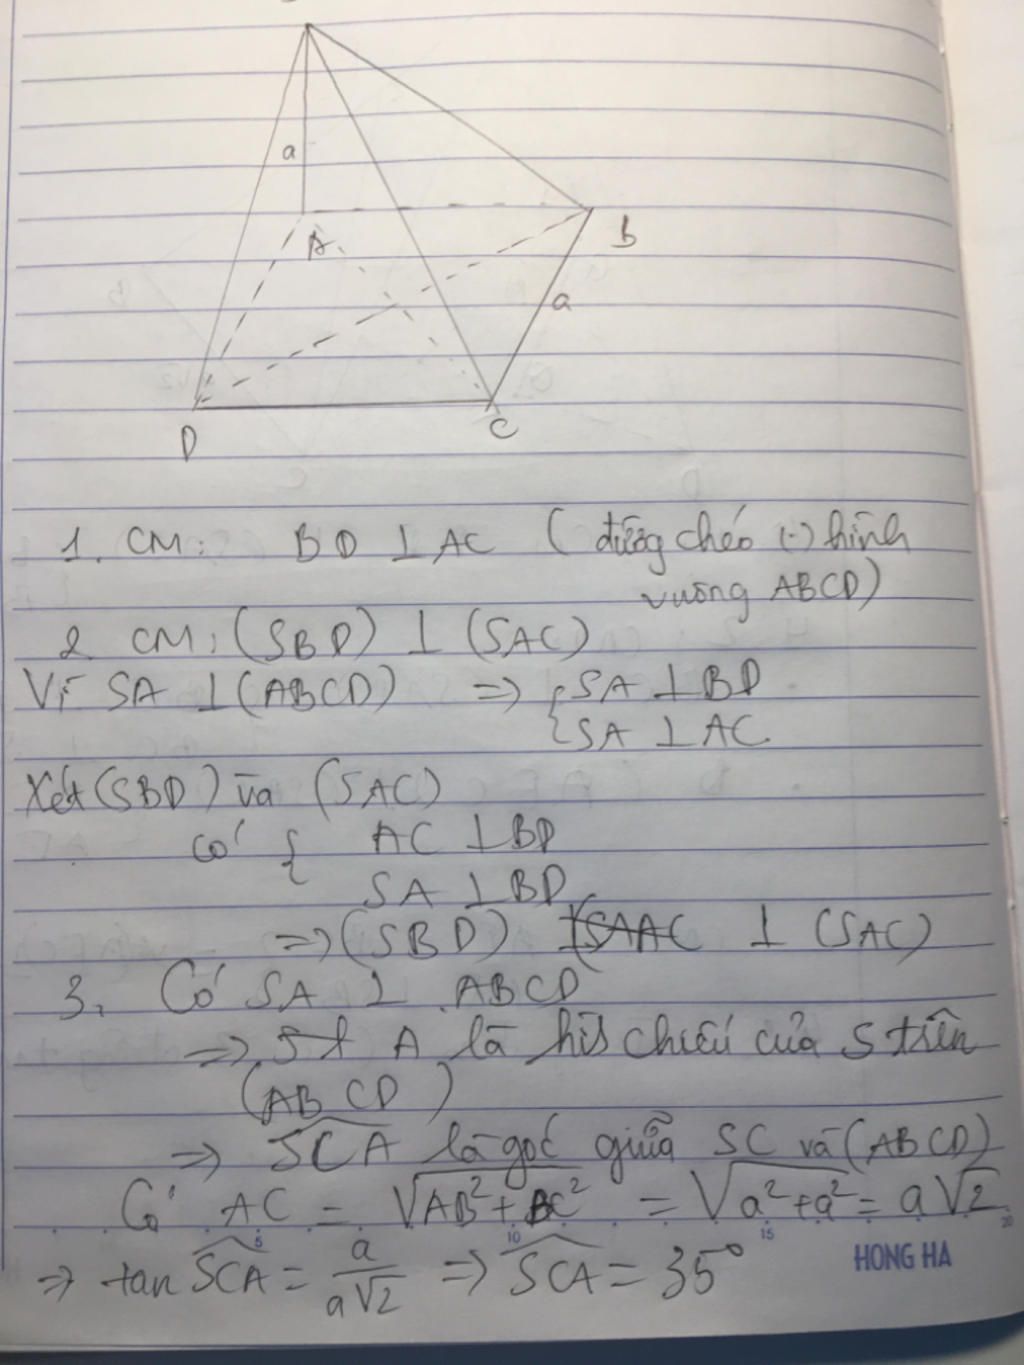 a
A
B
a
D
C
1. CM: BD ⊥ AC (đường chéo (·) hình
vuông ABCD)
2 CM: (SBD) ⊥ (SAC)
Vì SA ⊥ (ABCD) => { SA ⊥ BD
SA ⊥ AC
Xét (SBD) và (SAC)
có { AC ⊥ BD
SA ⊥ BD
=> (SBD) ⊥ (SAC)
3. Có SA ⊥ ABCD
=> A là hình chiếu của S trên
(ABCD)
=> SCA là góc giữa SC và (ABCD)
Có AC = √AB²+BC² = √a²+a² = a√2
5 10 15 20
HONG HA
=> tan SCA = a/a√2 => SCA = 35°